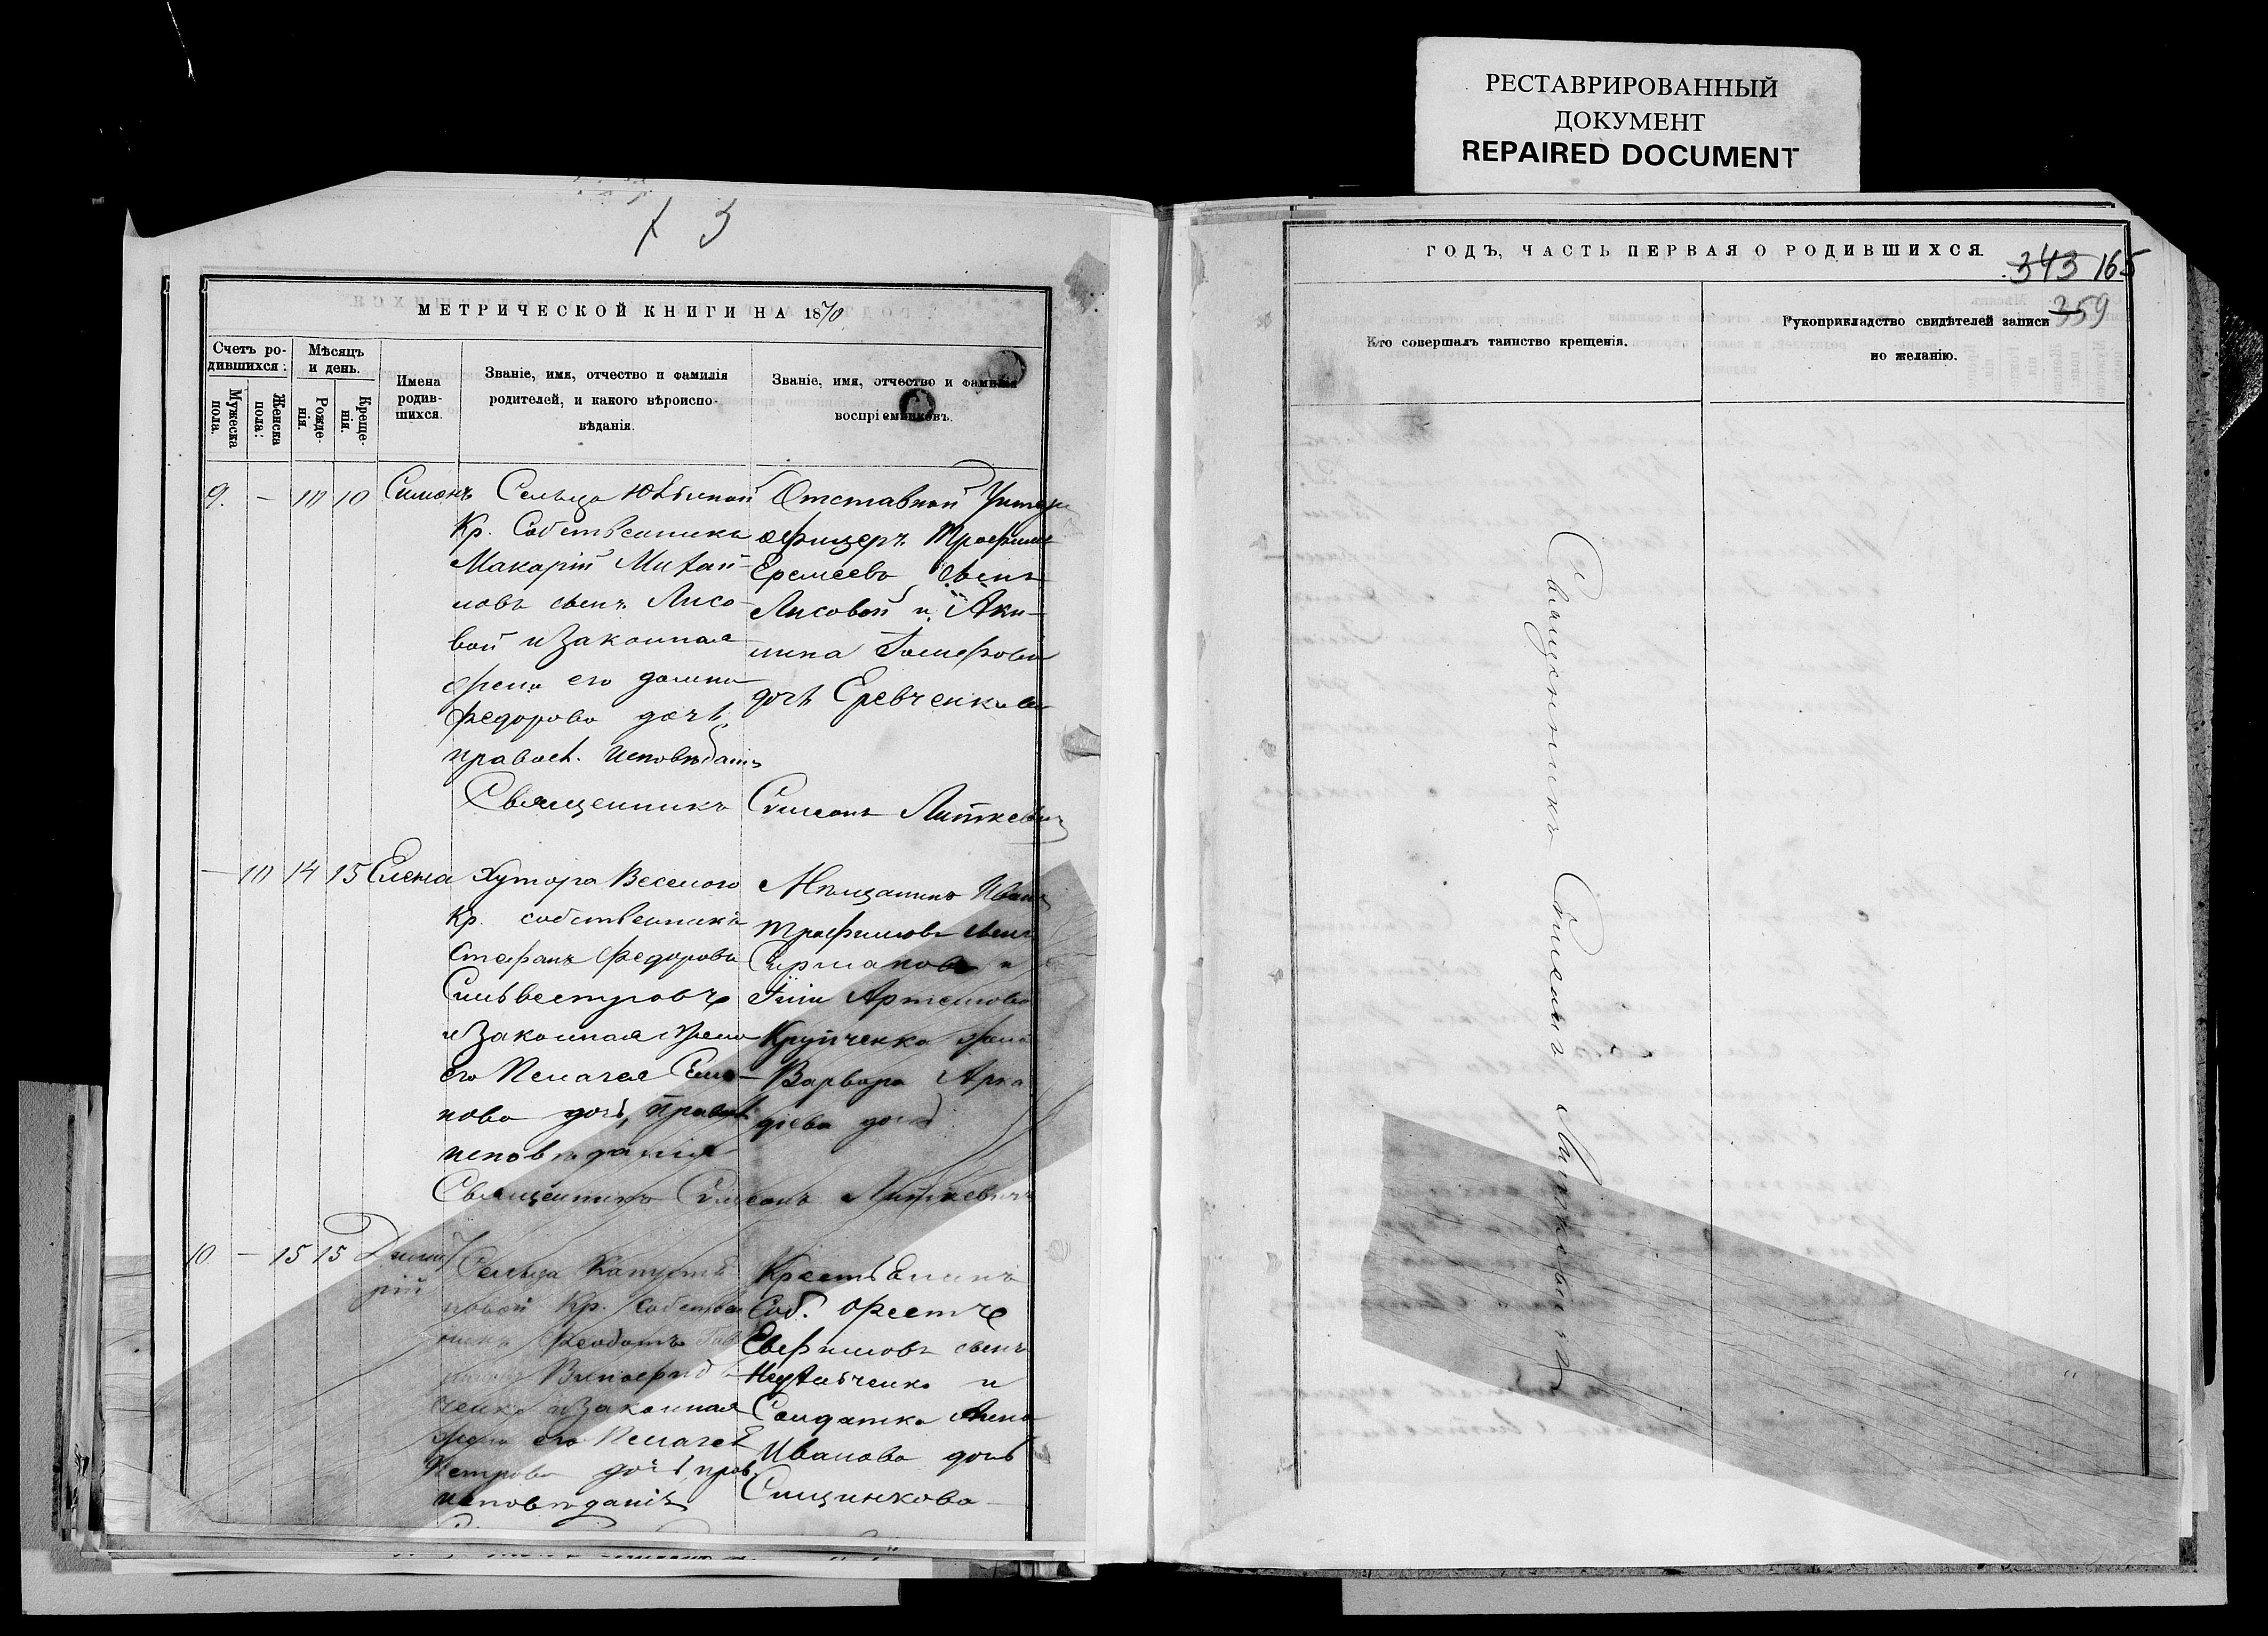 РЕСТАВРИРОВАННЫЙ
ДОКУМЕНТ
REPAIRED DOCUMENT
МЕТРИЧЕСКОЙ КНИГИ НА 1870
Счетъ ро-
дившихся:
Мужеска
пола.
Женска
пола:
Мѣсяцъ
и день.
Рожде-
нія.
Креще-
нія.
Имена
родив-
шихся.
Званіе, имя, отчество и фамилія
родителей, и какого вѣроиспо-
вѣданія.
Званіе, имя, отчество и фамилія
воспріемниковъ.
9. — 10 10 Симонъ
Сельца
Кр. Собственника
Макарій Михай-
ловъ сынъ Лисо-
вой и Законная
жена его
Федорова дочь,
правосл. исповѣданія
Отставной Унтеръ
офицеръ Трофимъ
Еремеевъ сынъ
Лисовой и Аки-
лина
дочь Еревченкова
Священникъ Симеонъ Литкевичъ
— 10 14 15 Елена
Хутора Веселого
Кр. собственника
Стефанъ Федоровъ
Сильвестровъ
и Законная жена
его Пелагея
нова дочь, правосл.
исповѣданія
Мѣщанинъ Иванъ
Трофимовъ сынъ
и
Артемова
жена
Варвара Арка
діева дочь
Священникъ Симеонъ Литкевичъ
10. — 15 15 Димит
рій
Сельца
Кр. Собствен
ника Феодотъ
ченко и Законная
жена его Пелагея
Петрова дочь, прав.
исповѣданія
Крестьянинъ
Соб. Орестъ
Евфимовъ сынъ
и
Солдатка Анна
Иванова дочь
Сищинкова
ГОДЪ, ЧАСТЬ ПЕРВАЯ О РОДИВШИХСЯ.
343 165
359
Кто совершалъ таинство крещенія.
Рукоприкладство свидѣтелей записи
по желанію.
Священникъ Симеонъ Литкевичъ